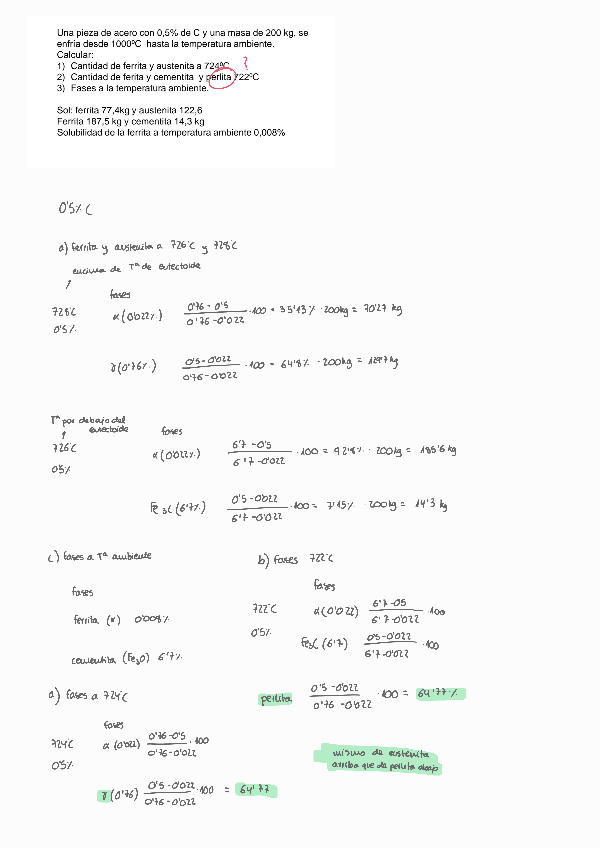 Una pieza de acero con 0,5% de C y una masa de 200 kg, se
enfría desde 1000ºC hasta la temperatura ambiente.
Calcular:
1) Cantidad de ferrita y austenita a 724ºC ?
2) Cantidad de ferita y cementita y perlita 722ºC
3) Fases a la temperatura ambiente.
Sol: ferrita 77,4kg y austenita 122,6
Ferrita 187,5 kg y cementita 14,3 kg
Solubilidad de la ferrita a temperatura ambiente 0,008%
0'5% C
a) ferrita y austenita a 726°C y 728°C
encima de Tª de eutectoide
fases
728°C α(0'022%) 0'76 - 0'5 / 0'76 - 0'022 · 100 = 35'13% · 200kg = 70'27 kg
0'5%
γ(0'76%) 0'5 - 0'022 / 0'76 - 0'022 · 100 = 64'8% · 200kg = 129'7 kg
Tª por debajo del
eutectoide fases
726°C α(0'022%) 6'7 - 0'5 / 6'7 - 0'022 · 100 = 92'8% · 200kg = 185'6 kg
0'5%
Fe3C (6'7%) 0'5 - 0'022 / 6'7 - 0'022 · 100 = 7'15% · 200kg = 14'3 kg
c) fases a Tª ambiente
fases
ferrita (α) 0'008%
cementita (Fe3C) 6'7%
b) fases 722°C
fases
722°C α(0'022) 6'7 - 0'5 / 6'7 - 0'022 · 100
0'5%
Fe3C (6'7) 0'5 - 0'022 / 6'7 - 0'022 · 100
perlita 0'5 - 0'022 / 0'76 - 0'022 · 100 = 64'77%
a) fases a 724°C
fases
724°C α(0'022) 0'76 - 0'5 / 0'76 - 0'022 · 100
0'5%
γ(0'76) 0'5 - 0'022 / 0'76 - 0'022 · 100 = 64'77
mismo de austenita
arriba que de perlita abajo